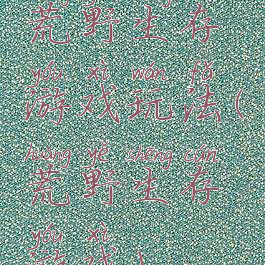 荒野生存
yóu xì wán fǎ
游戏玩法(
huāng yě shēng cún
荒野生存
yóu xì
游戏)